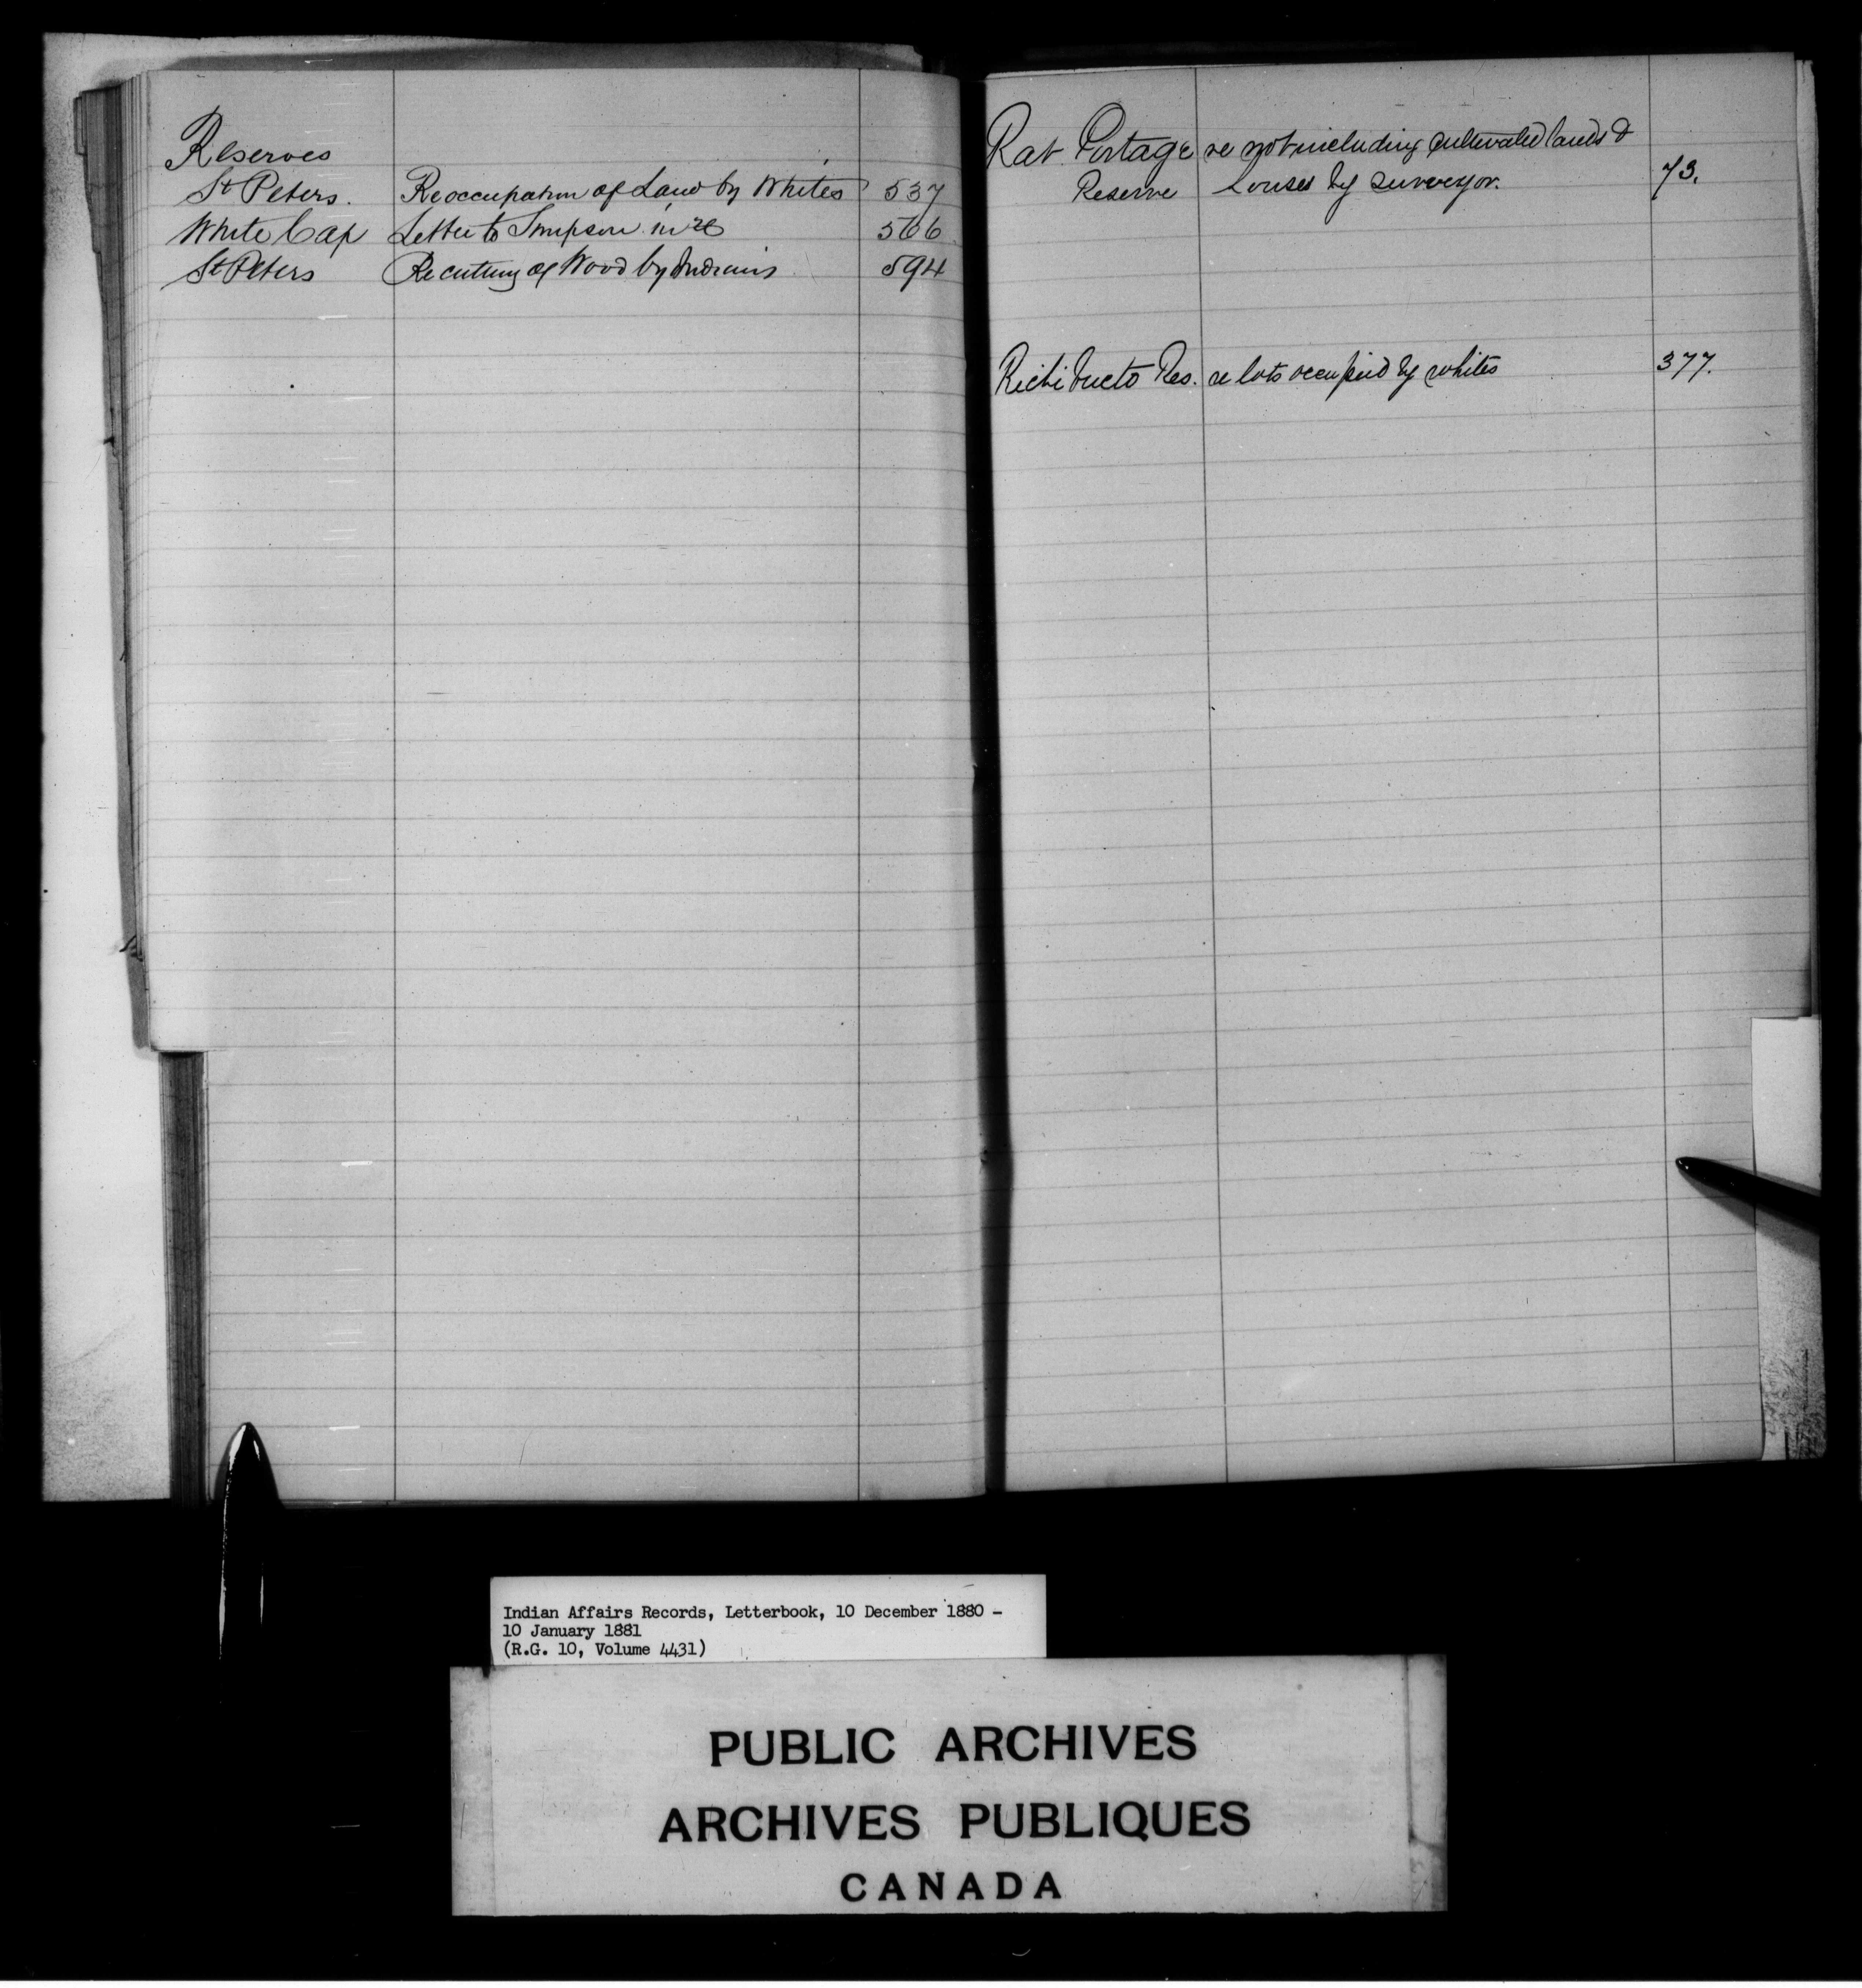 Reserves
St Peters. Re occupation of Land by Whites 537
White Cap Letter to Simpson in re 566
St Peters Re cutting of Wood by Indians 594
Rat Portage re not including cultivated lands &
Reserve houses by surveyor. 73.
Richibucto Res. re lots occupied by whites 377.
Indian Affairs Records, Letterbook, 10 December 1880 -
10 January 1881
(R.G. 10, Volume 4431)
PUBLIC ARCHIVES
ARCHIVES PUBLIQUES
CANADA